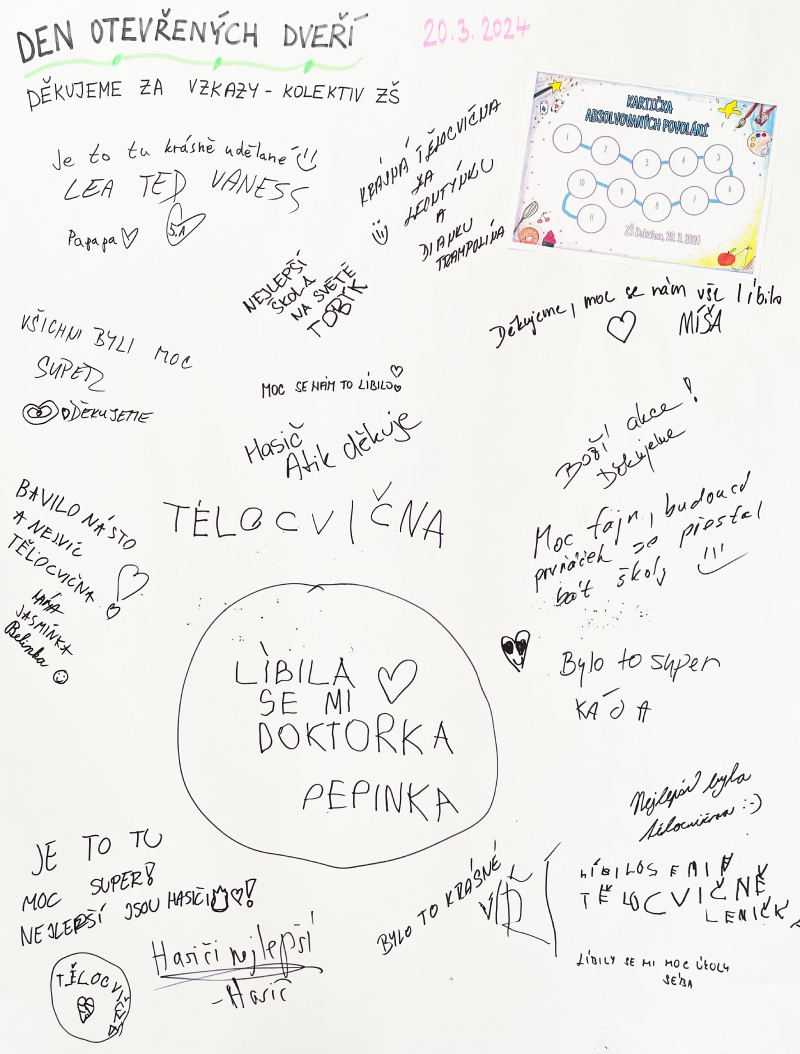 DEN OTEVŘENÝCH DVEŘÍ
20.3.2024
DĚKUJEME ZA VZKAZY - KOLEKTIV ZŠ
KARTIČKA
ABSOLVOVANÝCH POVOLÁNÍ
1
2
3
4
5
6
7
8
9
10
11
ZŠ 20. 3. 2024
Je to tu krásně udělané
LEA TED VANESS
Papapa
S.A
KRÁJNÁ TĚLOCVIČNA
ZA
LEONTÝNKU
A
DIANKU
TRAMPOLÍNA
NEJLEPŠÍ
ŠKOLA
NA SVĚTĚ
TOBÍK
Děkujeme, moc se nám vše líbilo
MÍŠA
VŠICHNI BYLI MOC
SUPER
DĚKUJEME
MOC SE NÁM TO LÍBILO
Hasič
Atik děkuje
BOŽÍ akce!
Děkujeme
BAVILO NÁSTO
A NEJVÍC
TĚLOCVIČNA
JASMÍNKA
Belinka
TĚLOCVIČNA
Moc fajn, budoucí
prvňáček se přestal
bát školy
LÍBILA
SE MI
DOKTORKA
PEPINKA
Bylo to super
KÁJA
Nejlepší byla
tělocvična :-)
JE TO TU
MOC SUPER!
NEJLEPŠÍ JSOU HASIČI!
BYLO TO KRÁSNÉ
VÍT
LÍBILOSEMIV
TĚLOCVIČNĚ
LENIČKA
Hasiči nejlepší
- Hasič
TĚLOCVIČNA
LÍBILY SE MI MOC ÚKOLY
SEBA